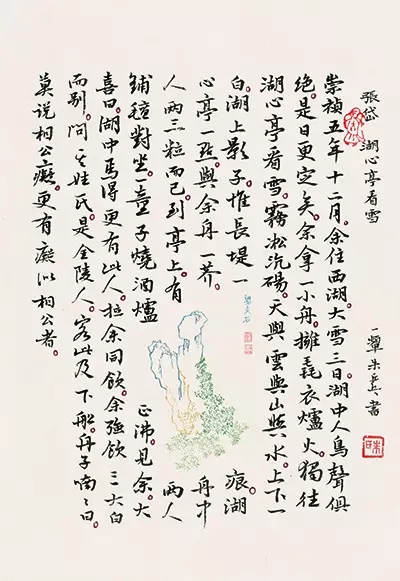 張岱 湖心亭看雪
崇禎五年十二月。余住西湖。大雪三日。湖中人鳥聲俱
绝。是日更定矣。余拿一小舟。擁毳衣爐火。獨往
湖心亭看雪。霧凇沆碭。天與雲與山與水。上下一
白。湖上影子。惟長堤一痕。湖
心亭一點。與余舟一芥。舟中
人两三粒而已。到亭上。有两人
鋪毡對坐。一童子燒酒爐正沸。見余。大
喜曰。湖中焉得更有此人。拉余同飲。余強飲三大白
而别。問其姓氏。是金陵人。客此。及下船。舟子喃々曰。
莫说相公癡。更有癡似相公者。
書